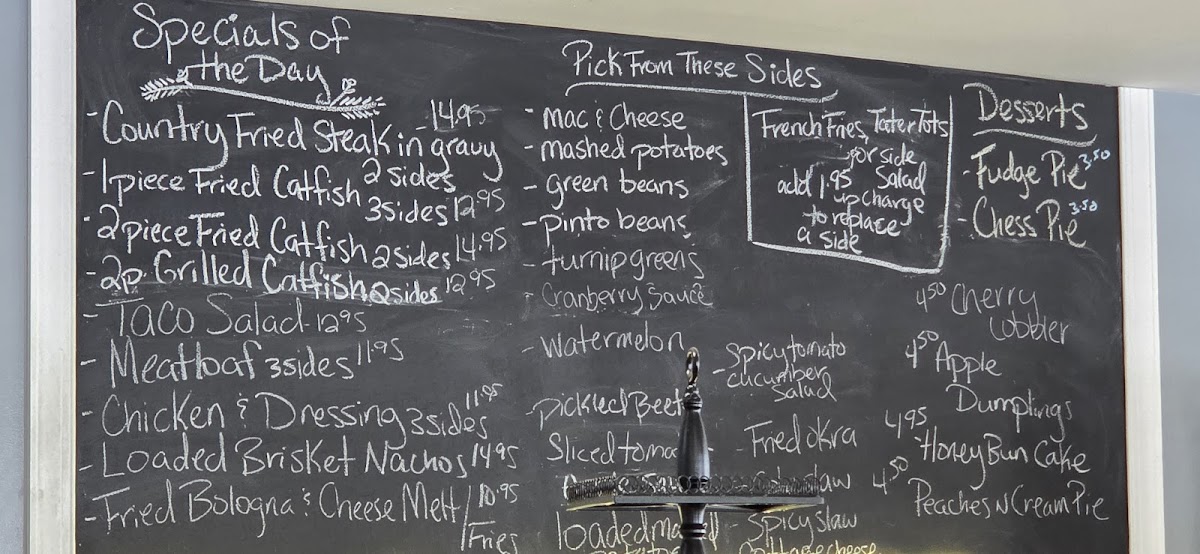 Specials of
the Day
- Country Fried Steak in gravy 14.95
2 sides
- 1 piece Fried Catfish 3 sides 12.95
- 2 piece Fried Catfish 2 sides 14.95
- 2p. Grilled Catfish 2 sides 12.95
- Taco Salad - 12.95
- Meatloaf 3 sides 11.95
- Chicken & Dressing 3 sides 11.95
- Loaded Brisket Nachos 14.95
- Fried Bologna & Cheese Melt / Fries 10.95
Pick From These Sides
- mac & Cheese
- mashed potatoes
- green beans
- pinto beans
- turnip greens
- Cranberry Sauce
- Watermelon
- Pickled Beet
Sliced toma
loaded ma
- Spicy tomato
cucumber
Salad
- Fried okra
slaw
- Spicy slaw
Cottage cheese
French Fries, Tater Tots
or side
add 1.95 Salad
up charge
to replace
a side
Desserts
- Fudge Pie 3.50
- Chess Pie 3.50
4.50 Cherry
Cobbler
4.50 Apple
Dumplings
4.95 Honey Bun Cake
4.50 Peaches N Cream Pie